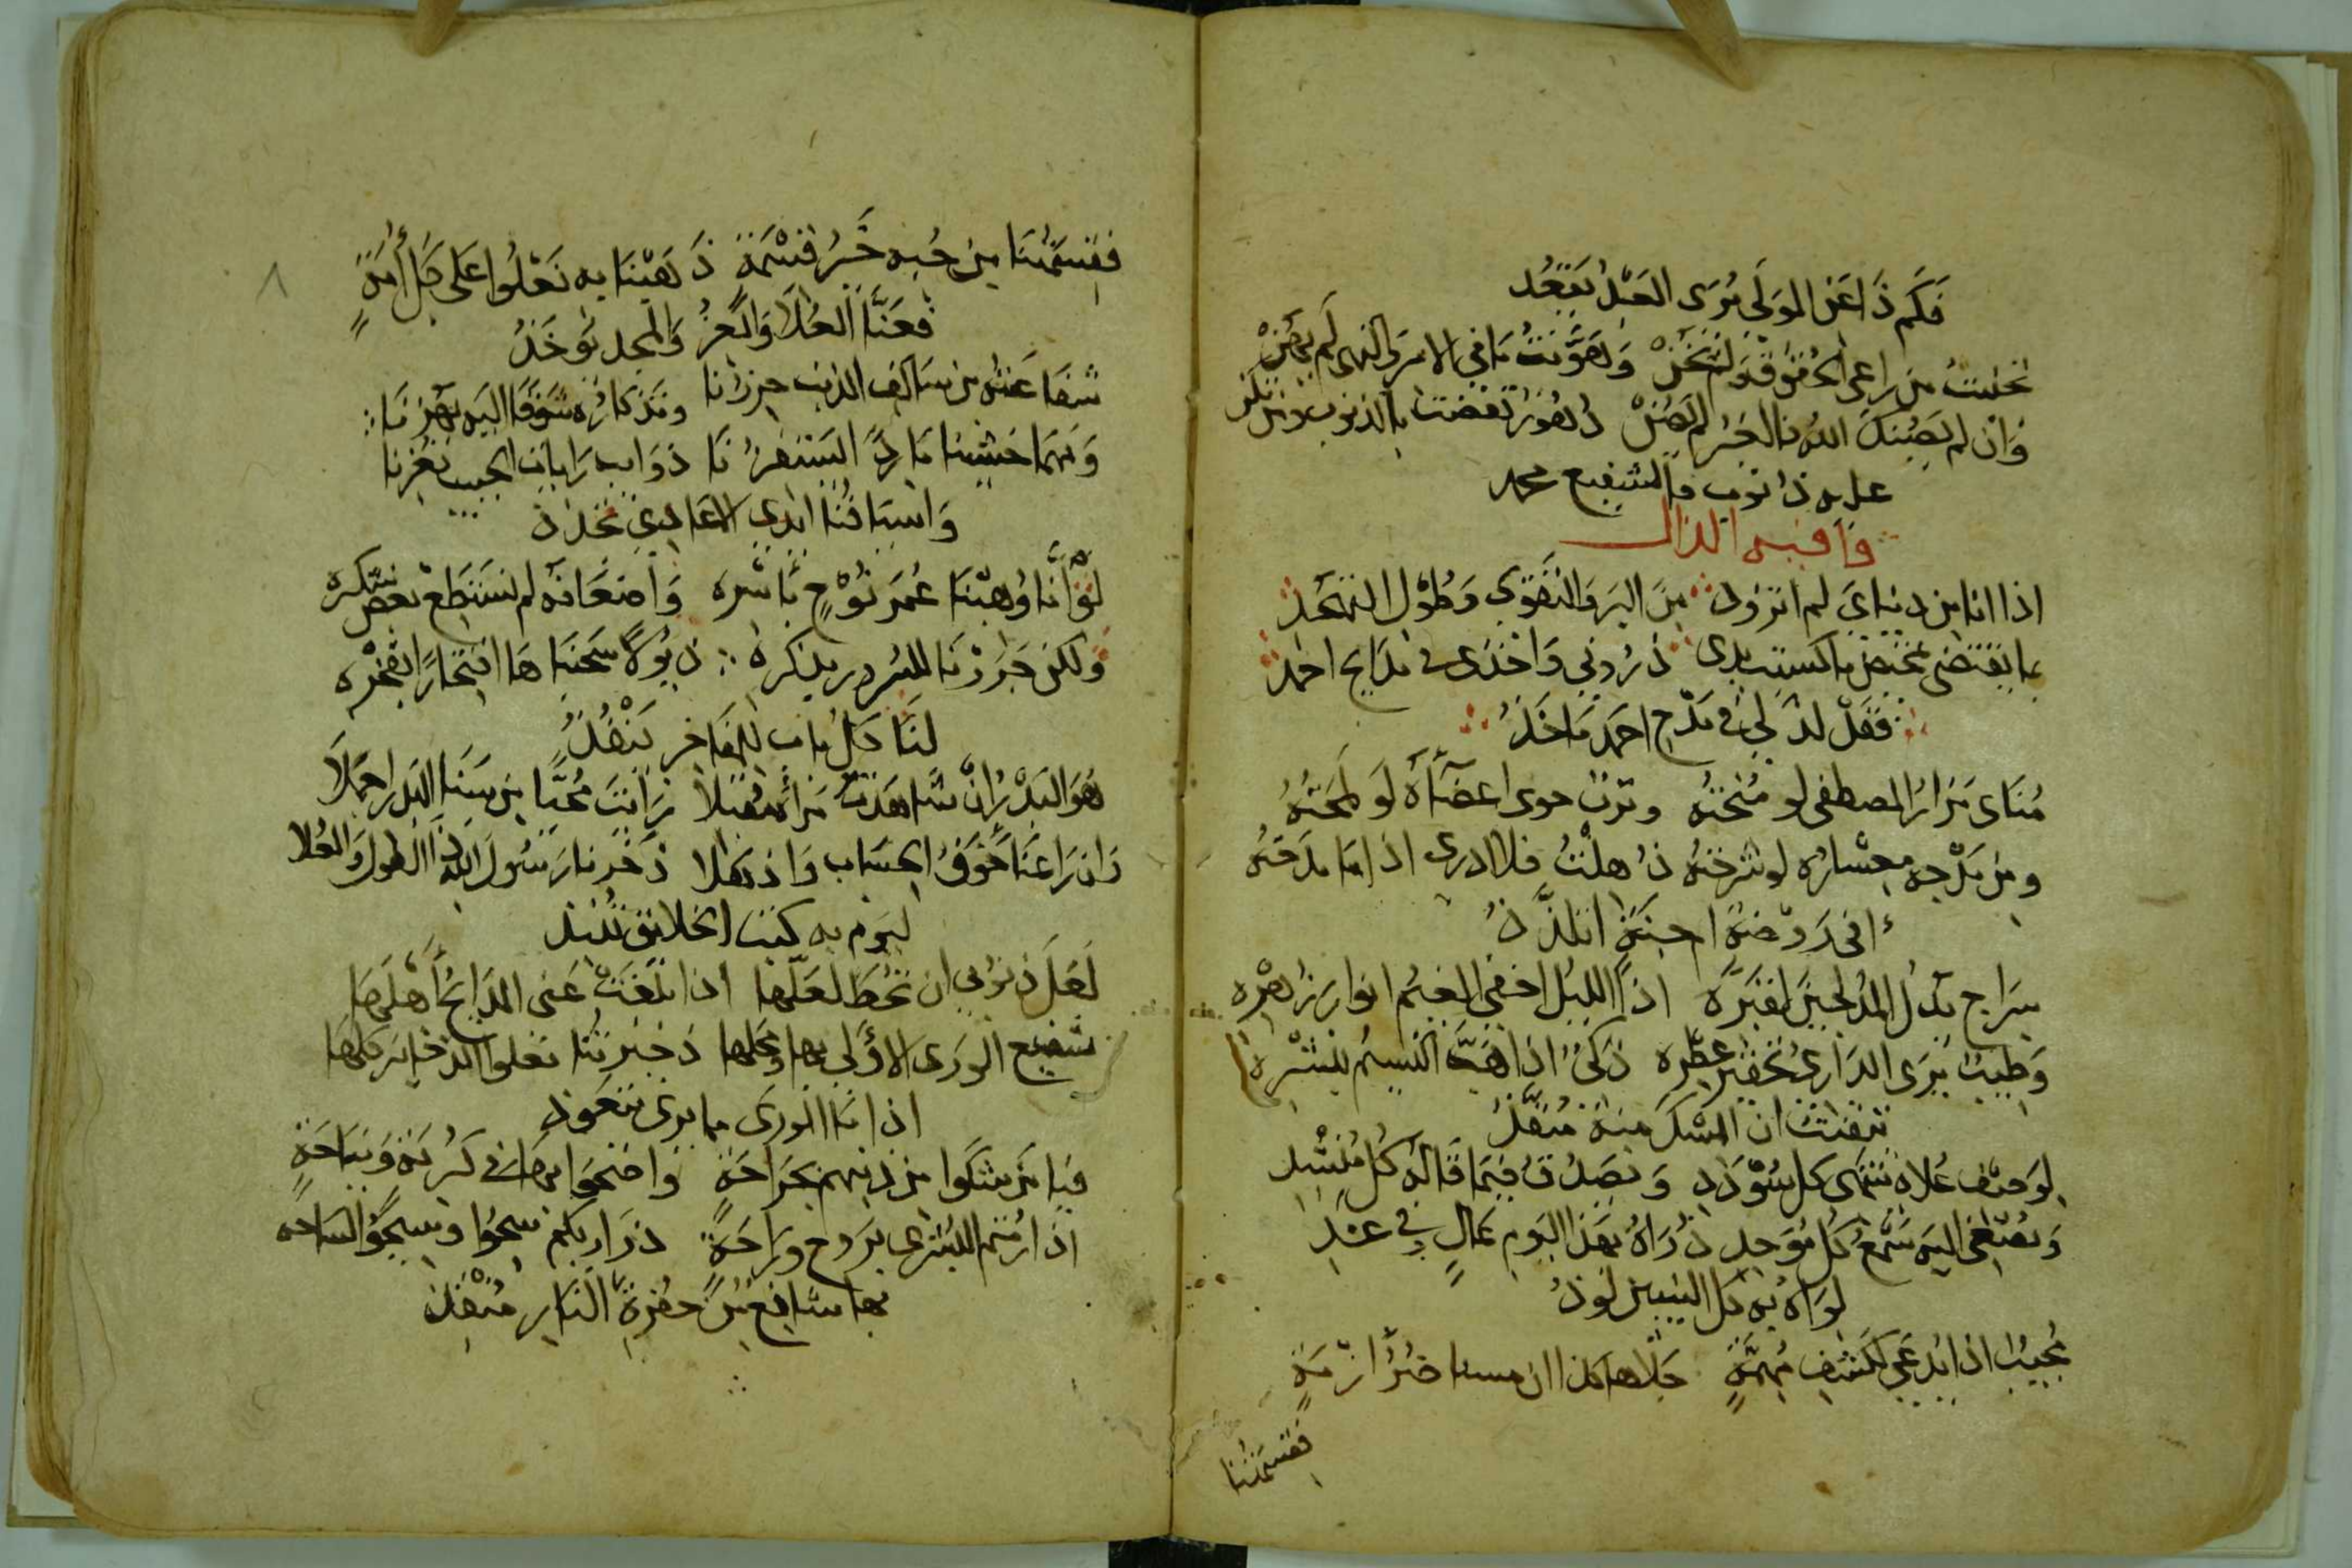 فَكَم ذَا عَنِ المَولَى يُرَى العَبْدُ يَبْعُدُ
نخليتُ من راعى الحقوق وَلم يَخُنْ وَلهَوَّنتُ مَا في الامر والنهى لَم يَهُنْ
وَان لم يَصُنكَ اللهُ فالحُر لم يَصُنْ دُهُورٌ تقضت بالذنوب
عليه ذا نوب فالشفيع محمد
قافيه الذال
اذا انا من دنياي لم اتزود منَ البر وَالتقوى وَطول التهجد
بما يقتضى مختص ما كسبت يدى ذرُوني وَاخذى فى مدايح احمد
فَقَد لذ لي في مَدْح احمَد مَاخَذُ
مُنَاى مَزارُ المصطفى لو مُنحتهُ وتربٌ حوى اعضَآهُ لَو لَمَحتُهُ
ومن مَدْحه لو شرحتهُ ذُهلتُ فلا ادرى اذا مَا مَدَحتهُ
أفى رَوضة اجنية اتلذَّذُ
سِرَاج يَدُل المُدلجينَ اذا الليل اخفى الغيم انوار زُهْرِه
وَطيب يُرَى الدَارىُ عِطره ذكىٌ اذا هَبَّ النسيمُ بنشْرِهِ
تيقنتُ ان المسْكَ منهُ مُنَفَّذُ
لوَصف عُلاه ينتهى كل سُؤدَدِ وَيصَدق فيمَا قَاله كل مُنشد
وَيصْغى اليه سَمْعُ كل مُوَحِدِ ذُرَاهُ بهذا اليَوم مَالٍ وفي غدِ
لوَاهُ به كل النبيين لوذُ
مُجيبٌ اذا يدعى لكشف مُهمَّةٍ جَلَاها كذا ان مسنا ضُرُّ ازمَةٍ
فقسمتنا
٨
فقسمَتُنَا مِن حُبِه خَيرُ قسْمَةٍ ذَهَبْنَا به نَعْلُوا عَلى كل أمةٍ
فعَنَّا العُلَا وَالعزُ وَالمجد يُوخَذُ
شفَاعَتهُ من سَالف الذنب حرزُنا وتذكارُه شَوقًا اليه يهزنَا
وَمَهمَا خشينا مَاردًا يستفزُنَا ذوَايب رَايات الحبيب تُعِزنَا
وَاسيَافُنَا ايدى الاعَادى تجذذ
لوْ أنَّا وُهبْنَا عُمَر نُوْحٍ بأسْره وَاضعَافهُ لم نستَطِعْ بعض شكره
ولكن جَرَرْنَا للسُرور بذكره ذيُولاً سَحَبنَاهَا افتخارًا بفخْره
لنَا كل باب للمفَاخر يَنْفُذُ
هُوَ البَدْرُ انْ شَاهَدْتَّ مَرآهُ مُقبلاً رَايتَ مُحَيَّا من سَنَا البَدر اجملَا
وَان رَاعَنَا خَوفُ الحسَاب وَاذهلا ذَخرنا رَسُولَ الله ذا الطول وَالعُلا
ليَوم به كتب الخلايق تُنبَذ
لَعَل ذنوبي ان تُحَطَ لعَلّهَا اذا بَلَغَتْ عَنى المدَايحُ أهْلَهَا
شفيع الورَى الاولى بها ومَحلها ذخيرتُنَا تعلوا الذخاير كلهَا
اذا مَا الورَى مما يرى يتعَوذ
فيَا مَن شكَوا من ذنبهم بجرَاحَةٍ وَاضحوا بهَا فى كُربَة وَنيَاحَةٍ
اذا رُمتم البشرى بروح ورَاحَةٍ ذرَارِيكم سحُوا وسيحُوا لسَاحة
بها شافع مِنْ حفرَةِ النار مُنْقِذ